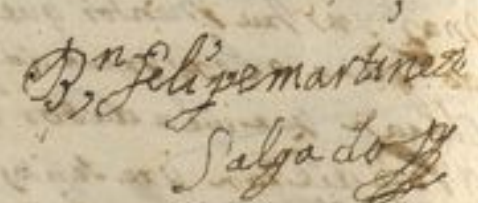 Bn, felipe martinez
Salgado